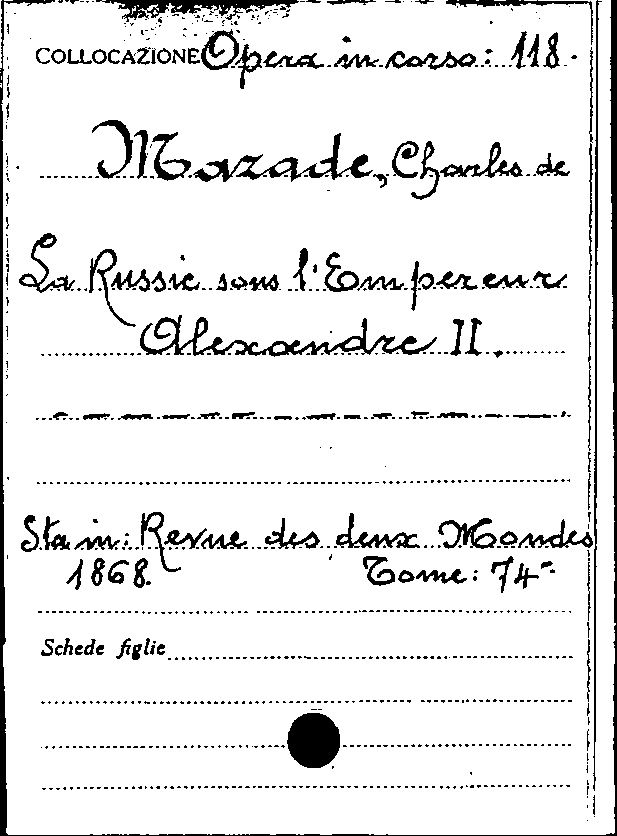 COLLOCAZIONE Opera in corso: 118.
Mazade, Charles de
La Russie sous l'Empereur
Alexandre II.
Sta in: Revue des deux Mondes
1868. Tome: 74-
Schede figlie